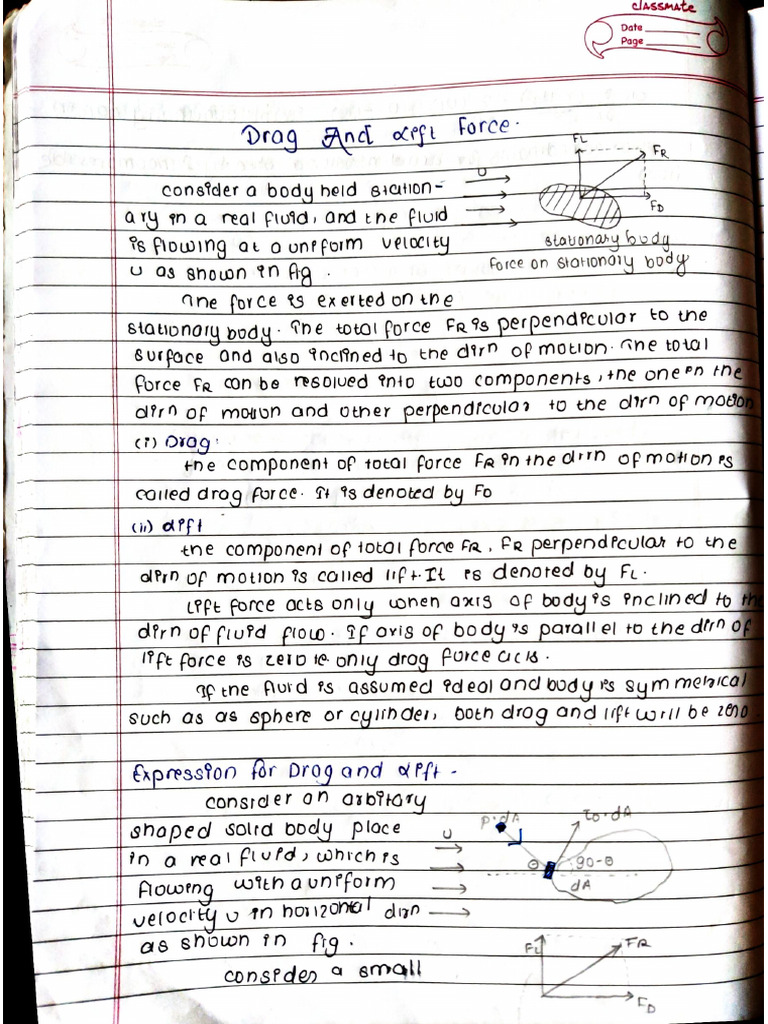 classmate
Date
Page
Drag And Lift Force.
FL
FR
U
FD
consider a body held station-
ary in a real fluid, and the fluid
is flowing at a uniform velocity
U as shown in fig.
stationary body
Force on stationary body
The force is exerted on the
stationary body. The total force FR is perpendicular to the
surface and also inclined to the dirn of motion. The total
force FR can be resolved into two components, the one in the
dirn of motion and other perpendicular to the dirn of motion
(i) Drag:
the component of total force FR in the dirn of motion is
called drag force. It is denoted by FD
(ii) Lift
the component of total force FR, FR perpendicular to the
dirn of motion is called lift. It is denoted by FL.
Lift force acts only when axis of body is inclined to the
dirn of fluid flow. if axis of body is parallel to the dirn of
lift force is zero ie only drag force acts.
If the fluid is assumed ideal and body is symmetrical
such as as sphere or cylinder, both drag and lift will be zero.
Expression for Drag and Lift.
consider an arbitary
shaped solid body place
in a real fluid, which is
flowing with a uniform
velocity U in horizontal dirn
as shown in fig.
consider a small
U
P.dA
τo.dA
θ
90-θ
dA
FL
FR
FD